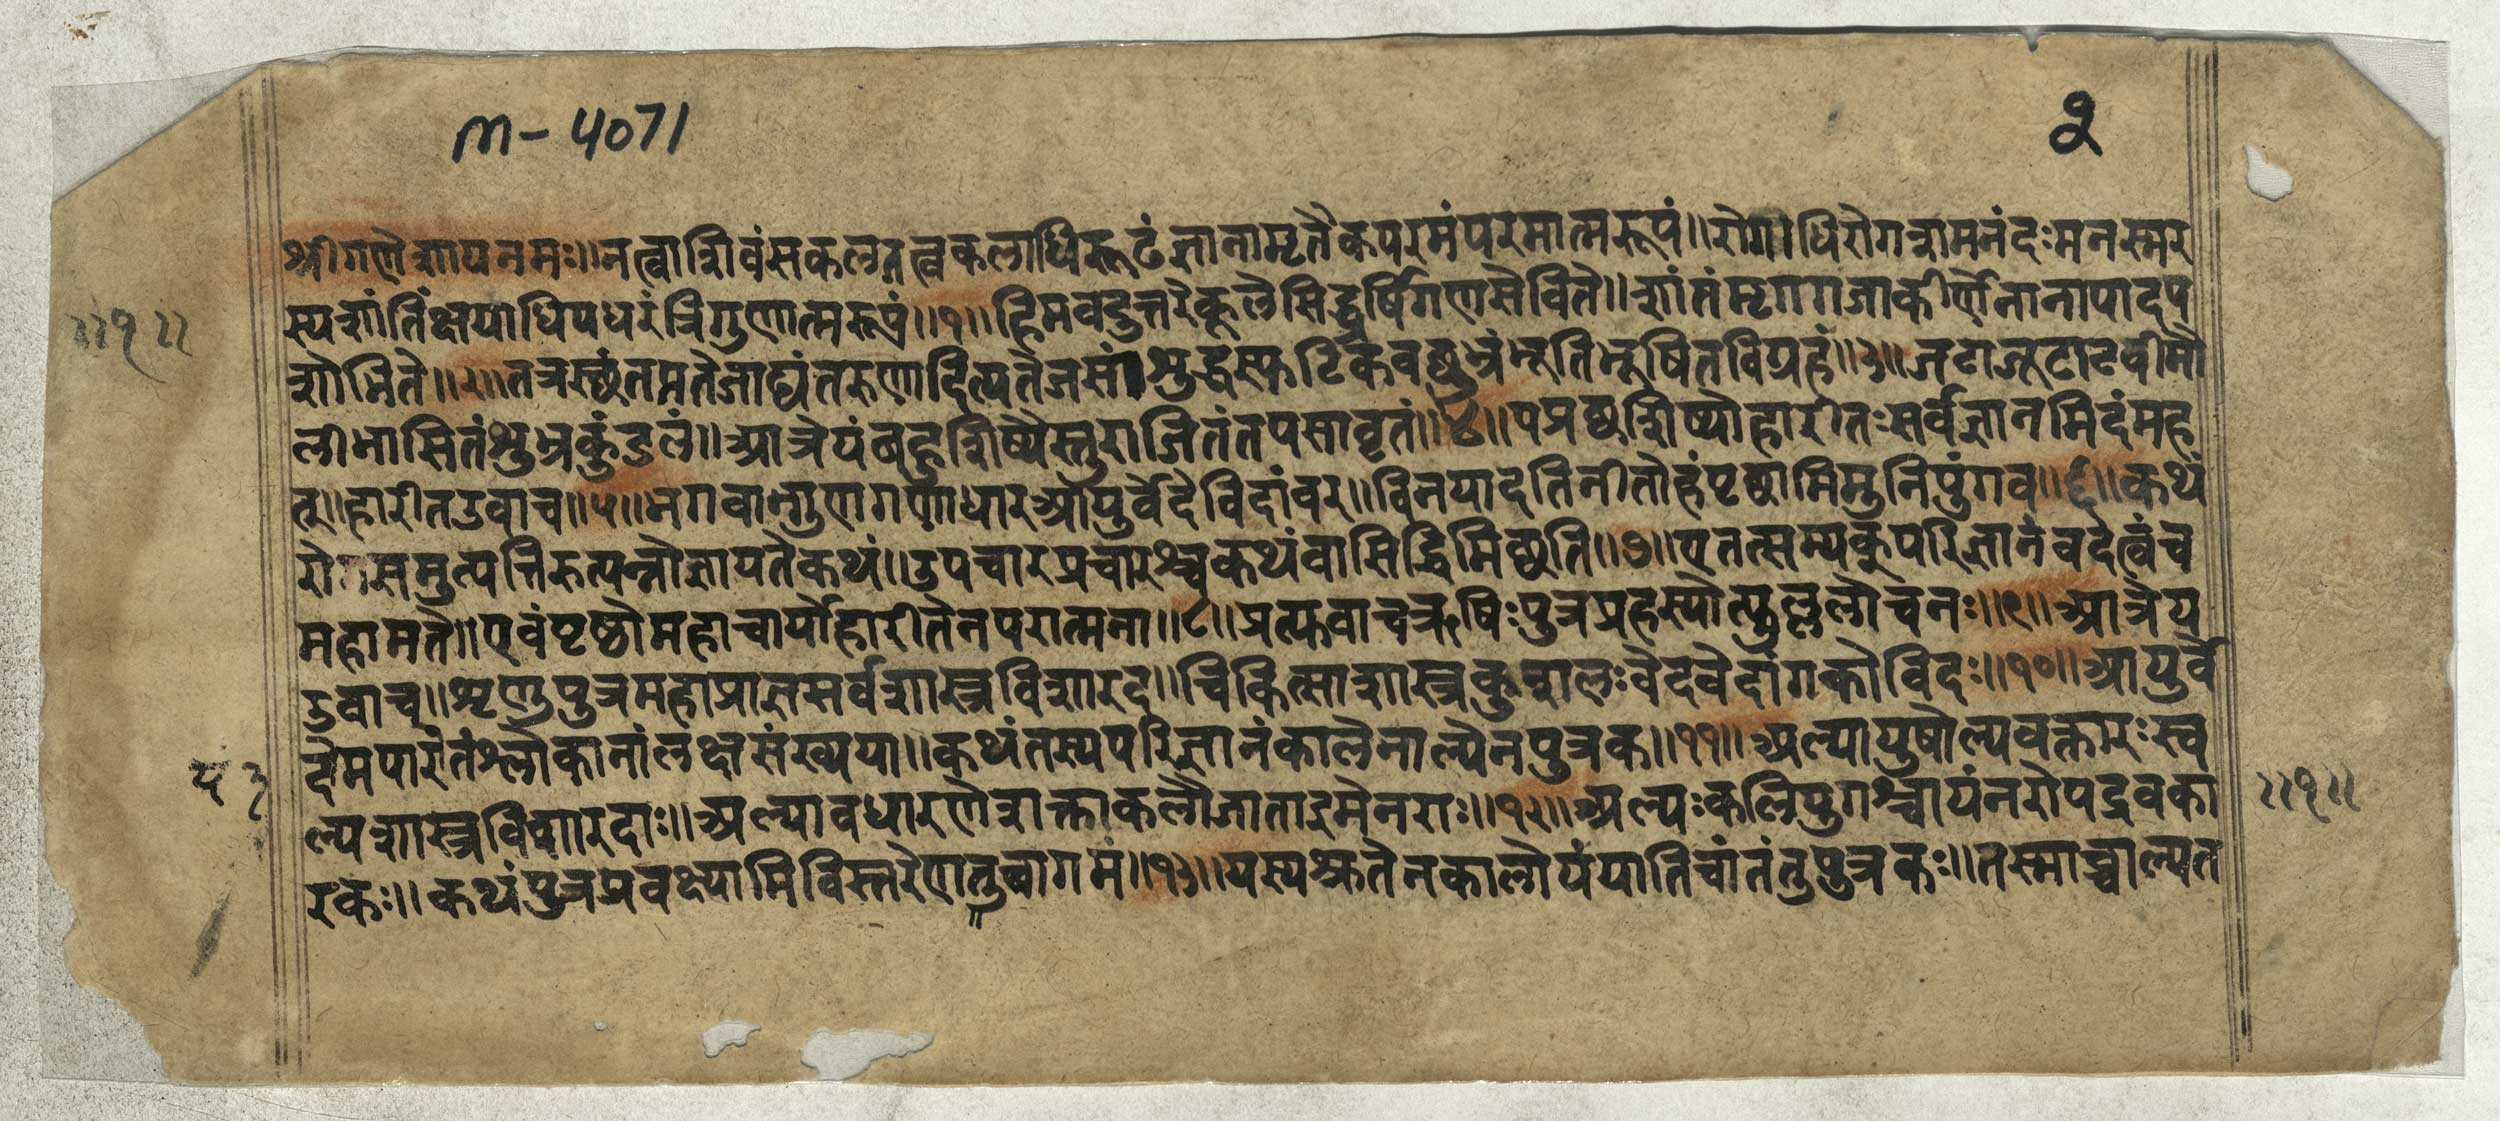 m - 4071
२
श्रीगणेशायनमः॥नत्वाशिवंसकलतत्वकलाधिरूढंज्ञानामृतैकपरमंपरमात्मरूपं॥रोगाधिरोगशमनंदःमनस्मर
स्पशांतिंक्षयाधिपधरंत्रिगुणात्मरूपं॥१॥हिमवदुत्तरेकूलेसिद्धर्षिगणसेविते॥शांतंमृगगजाकीर्णेनानापादप
शोभिते॥२॥तत्रस्छंतमतेजाढ्यंतरुणादित्यतेजसं।शुद्धस्फटिकवछुभ्रंभूतिभूषितविग्रहं॥३॥जटाजूटाटवीमौ
लीभासितंशुभ्रकुंडलं॥आत्रेयंबहुशिष्यैस्तुराजितंतपसावृतं॥४॥पप्रछशिष्योहारीतःसर्वज्ञानमिदंमह
त्॥हारीतउवाच॥५॥भगवान्गुणगणाधारआयुर्वेदेविदांवर॥विनयादतिनीतोहंपृछामिमुनिपुंगव॥६॥कथं
रोगसमुत्पत्तिरुत्पन्नोज्ञायतेकथं॥उपचारप्रचारश्चकथंवासिद्धिमिछति॥७॥एतत्सम्यक्परिज्ञानंवदत्वंच
महामते॥एवंपृष्ठोमहाचार्योहारीतेनपरात्मना॥८॥प्रत्यवाचऋषिःपुत्रप्रहस्योत्फुल्ललोचनः॥९॥आत्रेय
उवाच॥शृणुपुत्रमहाप्राज्ञसर्वशास्त्रविशारद॥चिकित्साशास्त्रकुशलःवेदवेदांगकोविदः॥१०॥आयुर्वे
देमपारंतंश्लोकानांलक्षसंख्यया॥कथंतस्यपरिज्ञानंकालेनाल्पेनपुत्रक॥११॥अल्पायुषोल्पवक्तारःस्व
ल्पशास्त्रविशारदाः॥अल्पावधारणेशक्ताकलौजाताइमेनराः॥१२॥अल्पःकलियुगश्चायंनरोपद्रवका
रकः॥कथंपुत्रप्रवक्ष्यामिविस्तरेणतुचागमं॥१३॥यस्यश्रुतेनकालोयंयातिचांतंतुपुत्रकः॥तस्माच्चाल्पत
॥१॥
॥१॥